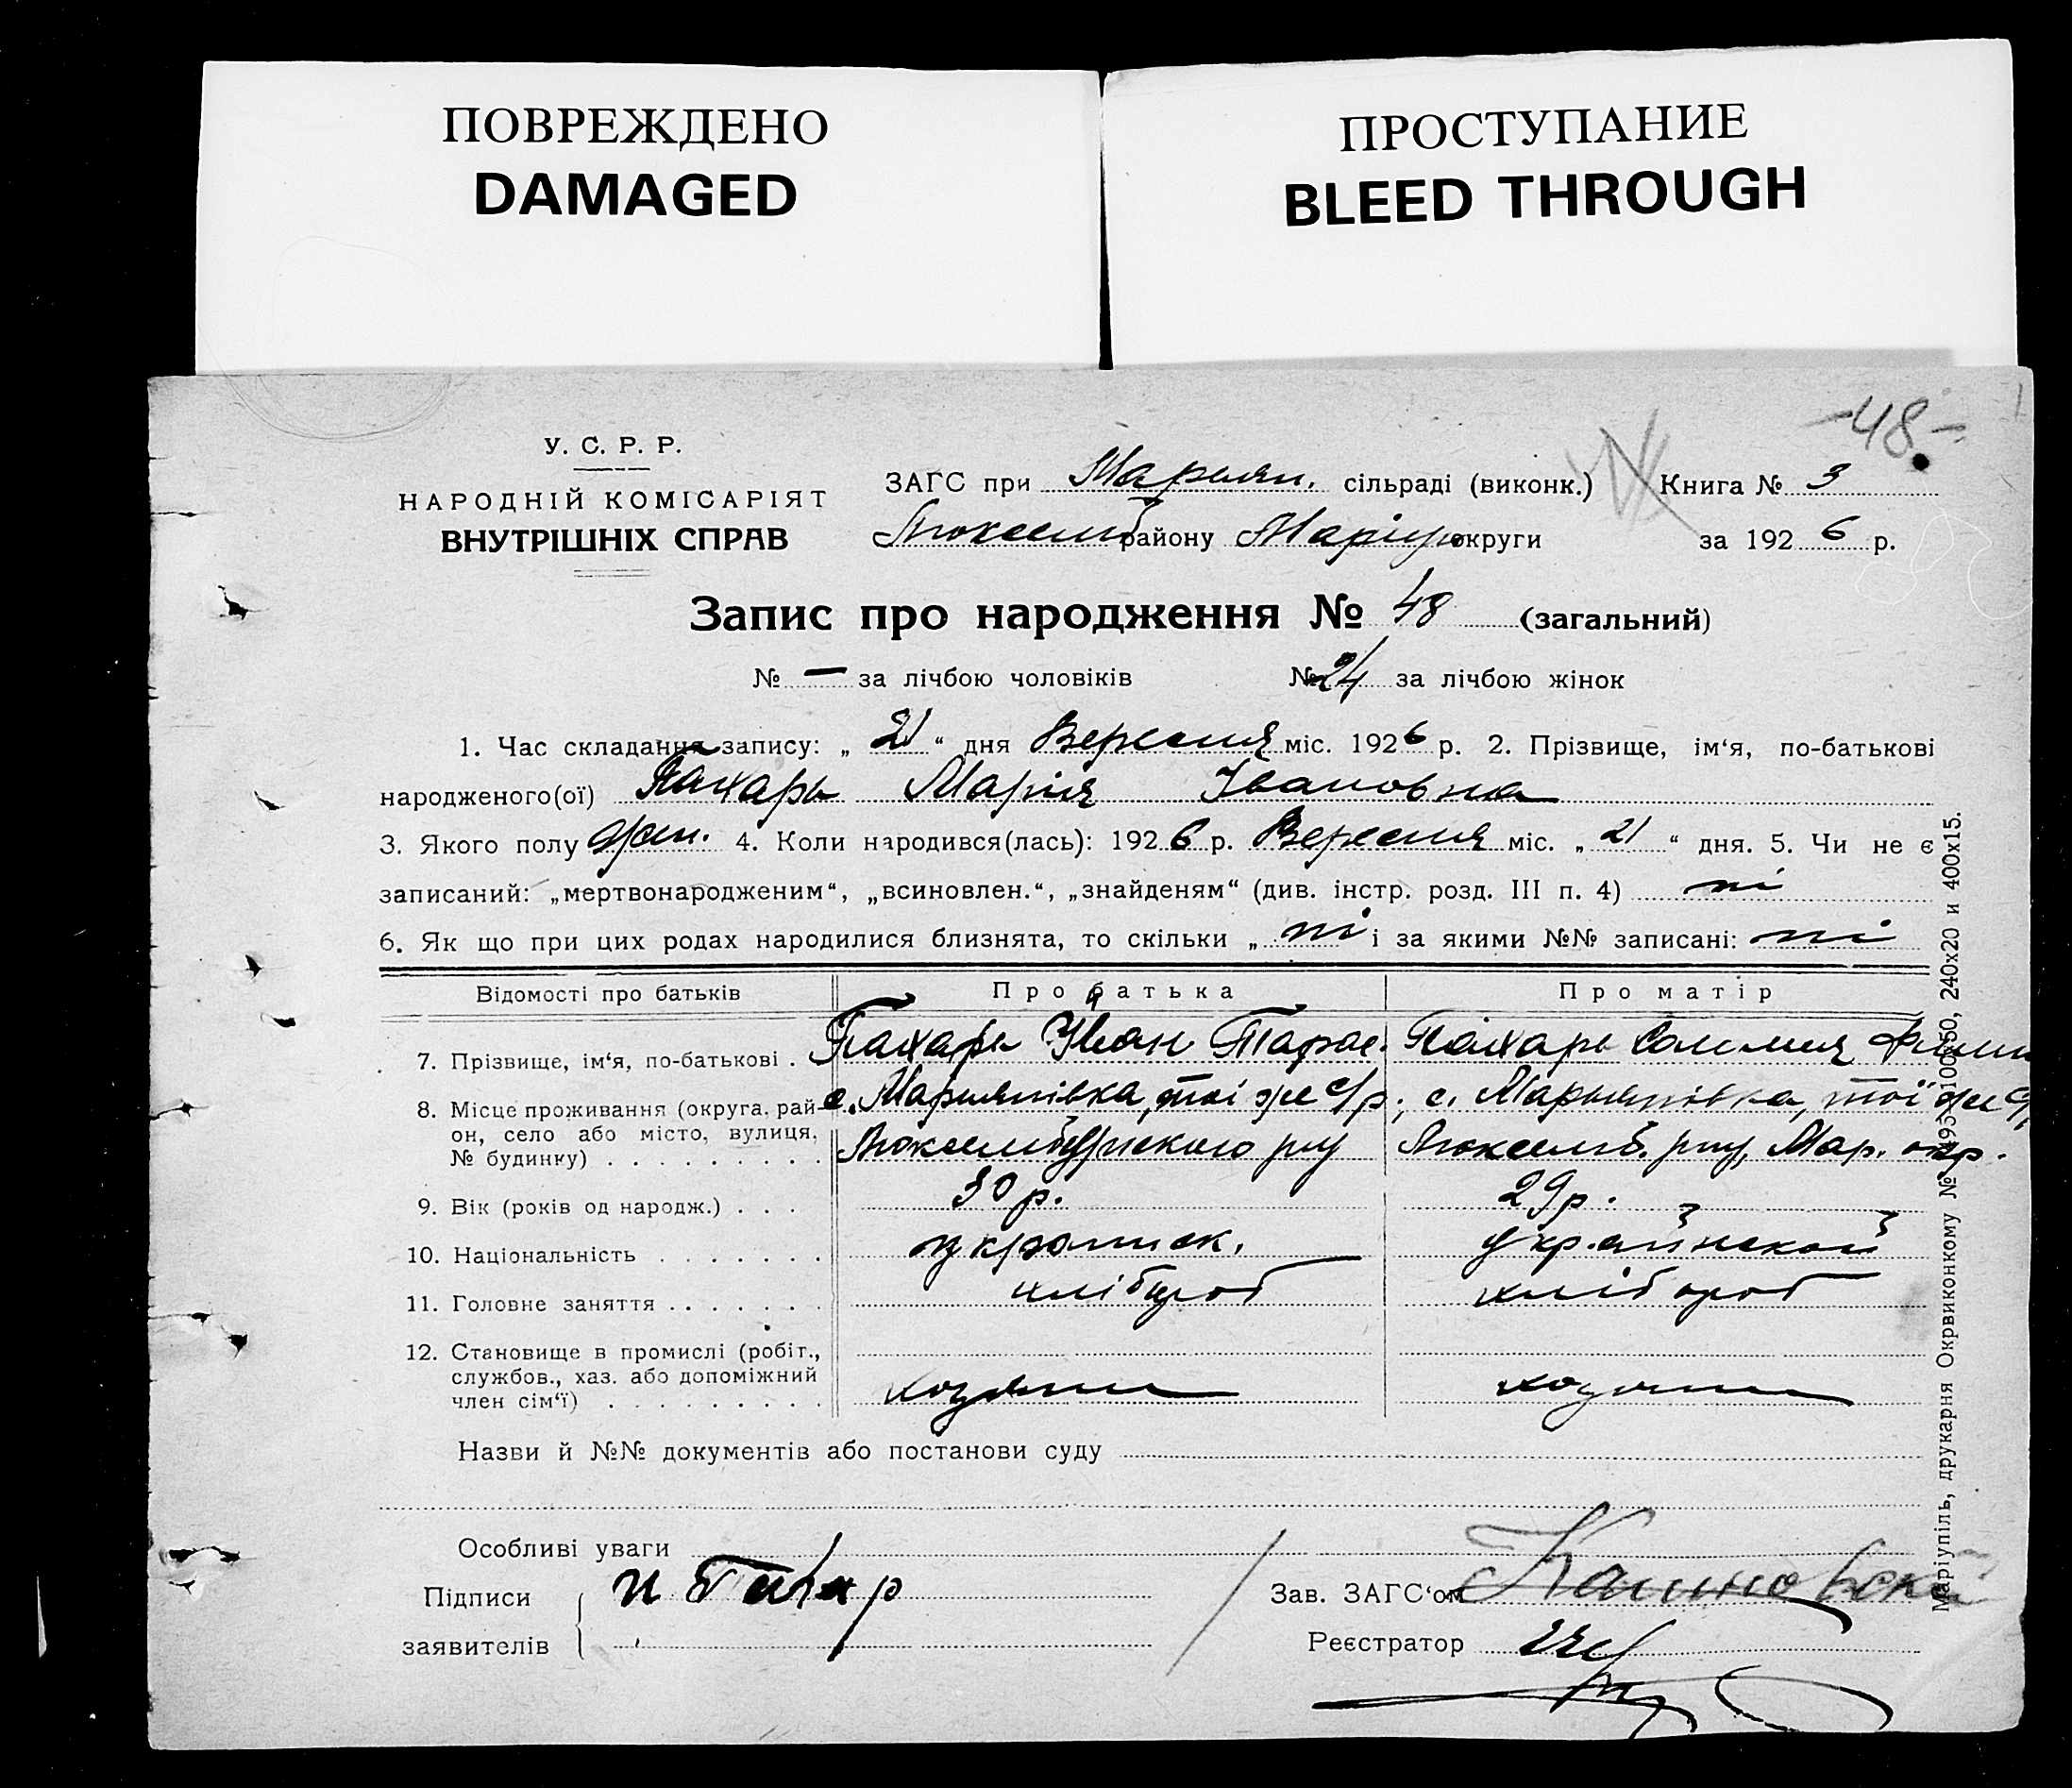 ПОВРЕЖДЕНО
DAMAGED
ПРОСТУПАНИЕ
BLEED THROUGH
-48-
У. С. Р. Р.
НАРОДНІЙ КОМІСАРІЯТ
ВНУТРІШНІХ СПРАВ
ЗАГС при Марьян. сільраді (виконк.) Книга № 3
Люксемб району Маріуп округи за 1926 р.
Запис про народження № 48 (загальний)
№ — за лічбою чоловіків № 24 за лічбою жінок
1. Час складання запису: „ 21 “ дня Вересня міс. 1926 р. 2. Прізвище, ім‘я, по-батькові
народженого(ої) Пахарь Марія Івановна
3. Якого полу жін. 4. Коли народився(лась): 1926 р. Вересня міс. „ 21 “ дня. 5. Чи не є
записаний: „мертвонародженим“, „всиновлен.“, „знайденям“ (див. інстр. розд. III п. 4) ні
6. Як що при цих родах народилися близнята, то скільки „ ні і за якими №№ записані: ні
Відомості про батьків Про батька Про матір
7. Прізвище, ім‘я, по-батькові . Пахарь Іван Тарас. Пахарь
8. Місце проживання (округа, рай- с. Марьянівка, тоі же с/р., с. Марьянівка, тої же с/р
он, село або місто, вулиця, Люксембургского р-ну Люксемб. р-ну, Мар. окр.
№ будинку) . . . . . . . . .
9. Вік (років од народж.) . . . 30 р. 29 р.
10. Національність . . . . . . . украінск. українской
11. Головне заняття . . . . . . . хлібороб хлібороб
12. Становище в промислі (робіт.,
службов., хаз. або допоміжний хозяин хозяин
член сім‘ї) . . . . . . . . .
Назви й №№ документів або постанови суду
Особливі уваги
Підписи И Пахар Зав. ЗАГС‘ом
заявителів Реєстратор
Маріупіль, друкарня Окрвиконкому № 100x50, 240x20 и 400x15.